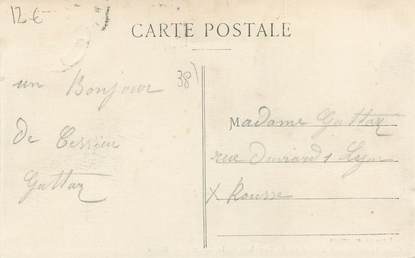 12 €
CARTE POSTALE
38
un Bonjour
de Cessieu
Gattaz
Madame Gattaz
rue Dumand 1 Lyon
X Rousse